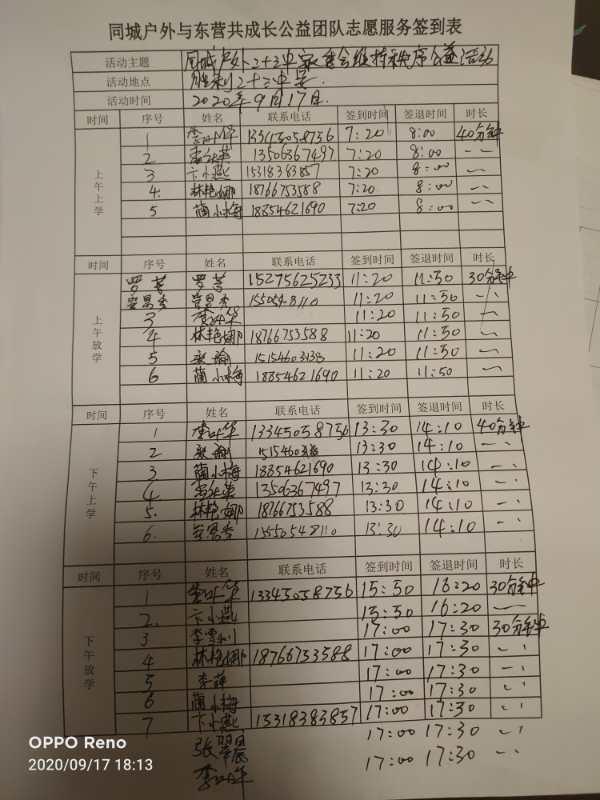 同城户外与东营共成长公益团队志愿服务签到表
活动主题 同城户外2+3中家委会维持秩序公益活动
活动地点 胜利2+3中学
活动时间 2020年9月17日
时间 序号 姓名 联系电话 签到时间 签退时间 时长
上午上学
1 13345058756 7:20 8:00 40分钟
2 13506367497 7:20 8:00 〃
3 卞小燕 15318383857 7:20 8:00 〃
4 林艳娜 18766753588 7:20 8:00 〃
5 蔺小梅 18854621690 7:20 8:00 〃
时间 序号 姓名 联系电话 签到时间 签退时间 时长
上午放学
罗芳 罗芳 15275625233 11:20 11:50 30分钟
11:20 11:50 〃
3 11:20 11:50 〃
4 林艳娜 18766753588 11:20 11:50 〃
5 11:20 11:50 〃
6 蔺小梅 18854621690 11:20 11:50 〃
时间 序号 姓名 联系电话 签到时间 签退时间 时长
下午上学
1 13345058756 13:30 14:10 40分钟
2 13:30 14:10 〃
3 蔺小梅 18854621690 13:30 14:10 〃
4 13506367497 13:30 14:10 〃
5 林艳娜 18766753588 13:30 14:10 〃
6 13:30 14:10 〃
时间 序号 姓名 联系电话 签到时间 签退时间 时长
下午放学
1 13345058756 15:50 16:20 30分钟
2 卞小燕 15:50 16:20 〃
3 17:00 17:30 30分钟
4 林艳娜 18766753588 17:00 17:30 〃
5 李萍 17:00 17:30 〃
6 蔺小梅 17:00 17:30 〃
7 卞小燕 15318383857 17:00 17:30 〃
张翠晨 17:00 17:30 〃
17:00 17:30 〃
OPPO Reno
2020/09/17 18:13